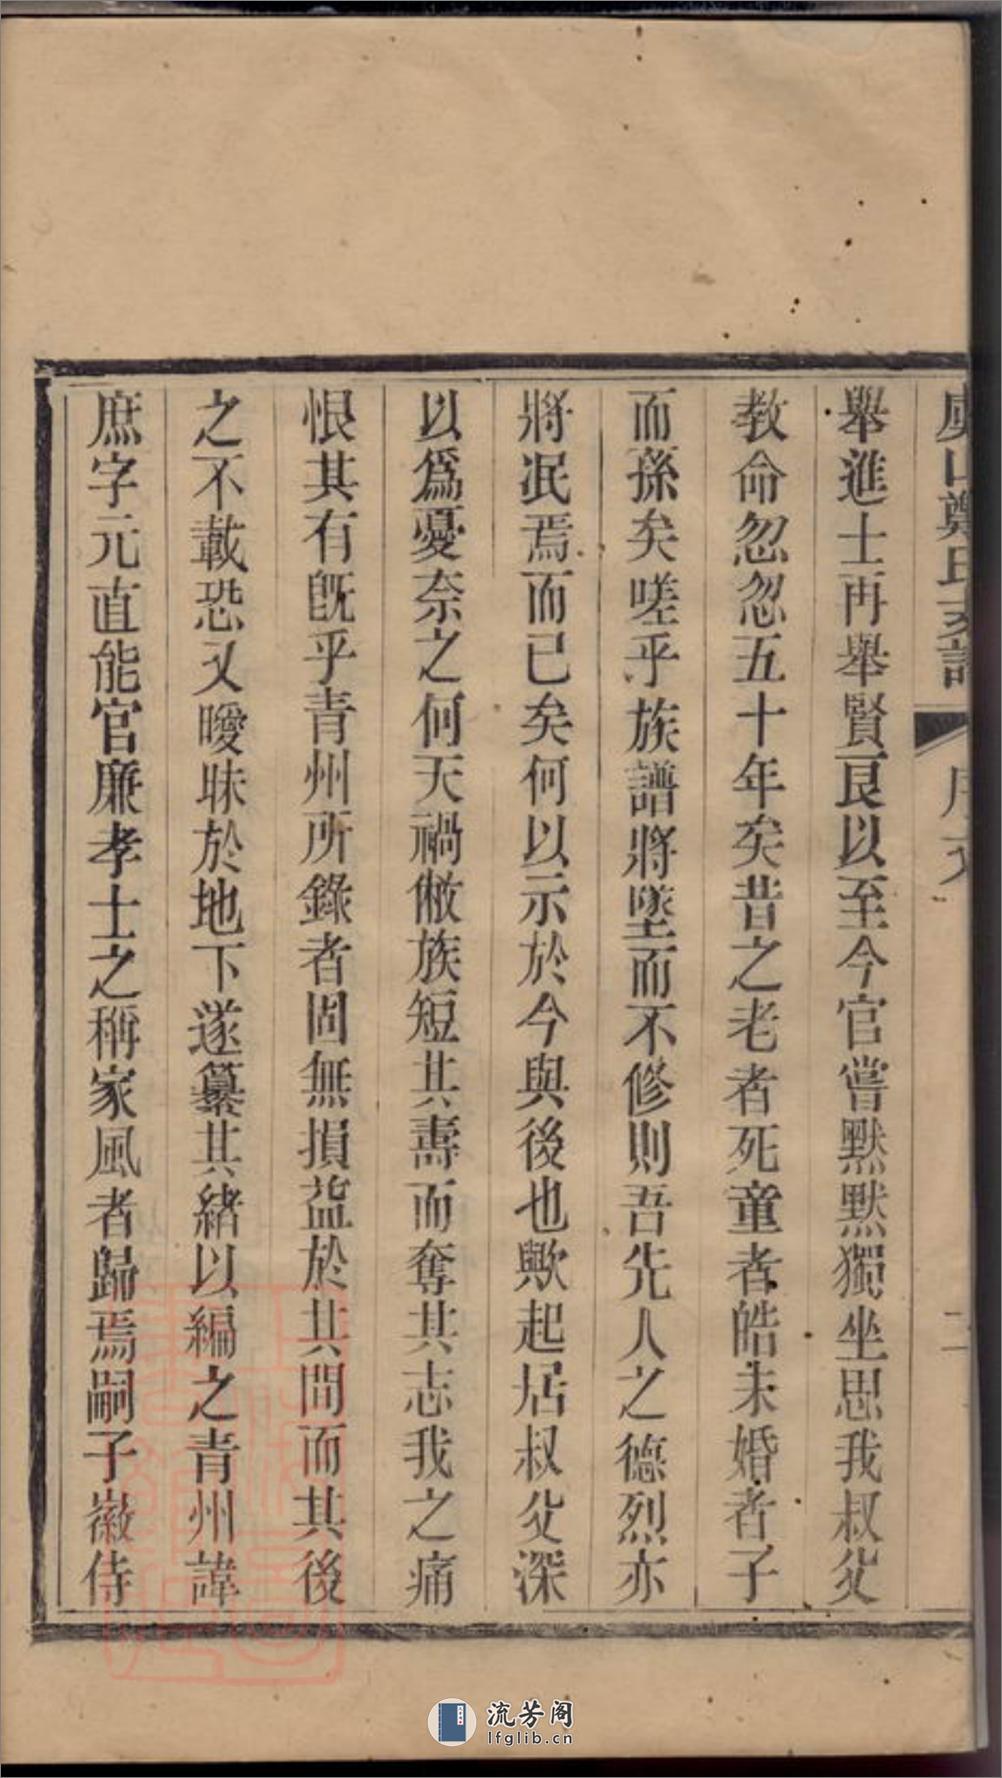 虞山鄭氏家譜 序文 二
舉進士再舉賢良以至今官嘗默默獨坐思我叔父
教命忽忽五十年矣昔之老者死童者皓未婚者子
而孫矣嗟乎族譜將墜而不修則吾先人之德烈亦
將泯焉而已矣何以示於今與後也歟起居叔父深
以爲憂奈之何天禍敝族短其壽而奪其志我之痛
恨其有旣乎青州所錄者固無損益於其問而其後
之不載恐又曖昧於地下遂纂其緒以編之青州諱
庶字元直能官廉孝士之稱家風者歸焉嗣子徽侍
流芳阁
lfglib.cn